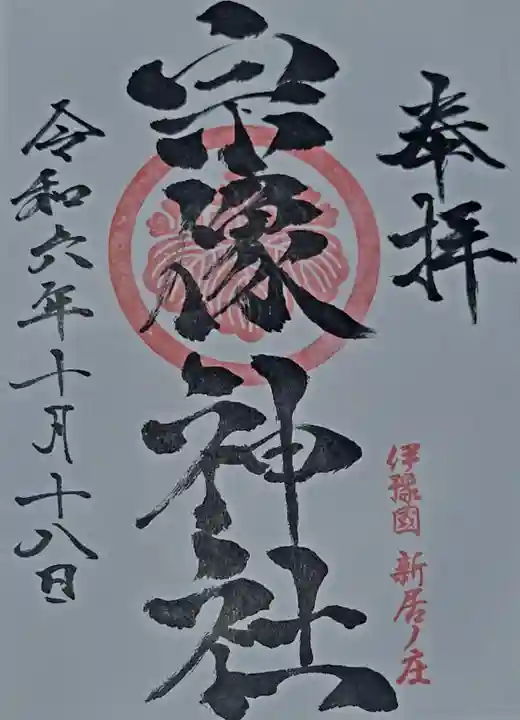 奉拝
伊豫國 新居ノ庄
宗像神社
令和六年十月十八日